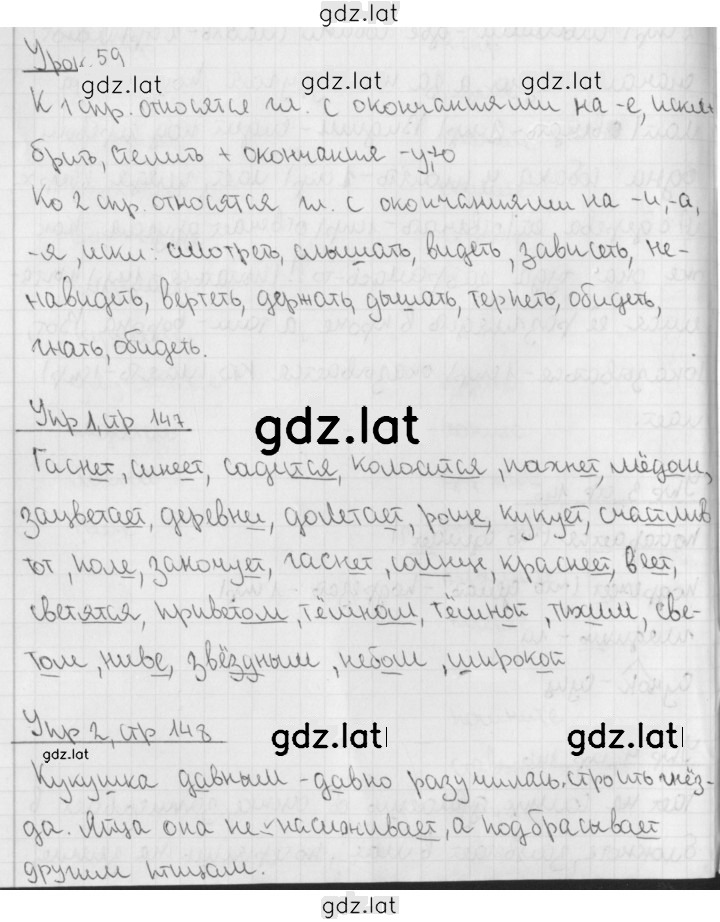 gdz.lat
Урок 59
gdz.lat
gdz.lat
К 1 спр. относятся гл. с окончаниями на -е, искл.
брить, стелить + окончания -у,-ю
Ко 2 спр. относятся гл. с окончаниями на -и,-а,
-я, искл: смотреть, слышать, видеть, зависеть, не-
навидеть, вертеть, держать, дышать, терпеть, обидеть,
гнать, обидеть.
Упр 1, стр 147
gdz.lat
Гаснет, синеет, садится, колосится, пахнет, мёдом,
зацветает, деревни, долетает, роще, кукует, счастлив
от, поле, закочует, гаснет, солнце, краснеет, веет,
светятся, приветом, тёмном, темной, тихим, све-
том, ниве, звёздным, небом, широкой
Упр 2, стр 148
gdz.lat
gdz.lat
gdz.lat
Кукушка давным-давно разучилась строить гнёз-
да. Яйца она не насиживает, а подбрасывает
другим птицам.
gdz.lat